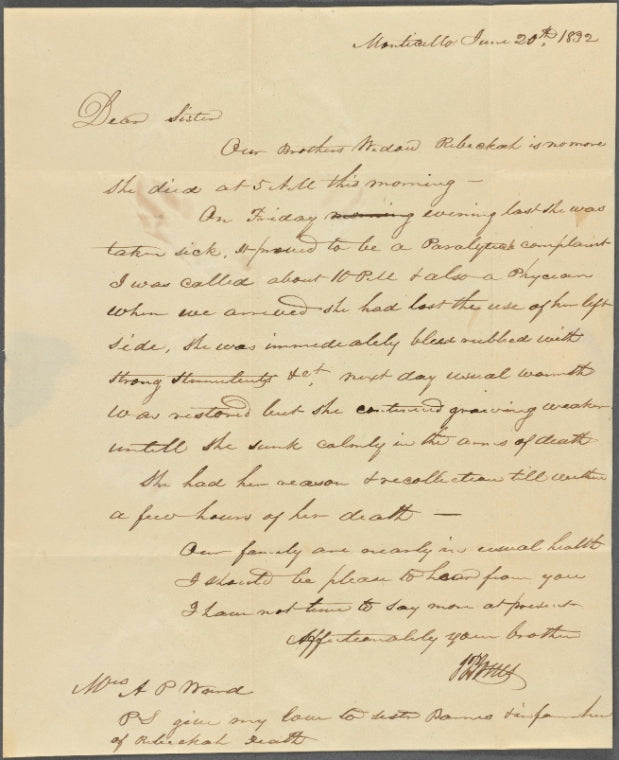 Monticello June 20th, 1832
Dear Sister
Our Brothers Widow Rebeckah is no more
She died at 5 AM this morning —
On Friday morning evening last she was
taken sick, it proved to be a Paralytick complaint
I was called about 10 PM & also a Phycian
when we arrived she had lost the use of her left
side, she was immediately bleed rubbed with
strong stimulents &ct, next day usual warmth
was restored but she continued growing weaker
untill she sunk calmly in the arms of death
She had her reason & recollection till within
a few hours of her death —
Our family are nearly in usual health
I should be please to hear from you
I have not time to say more at present
Affectionately your brother
Mrs A P Ward
PS give my love to sister Barnes & inform her
of Rebeckah Death